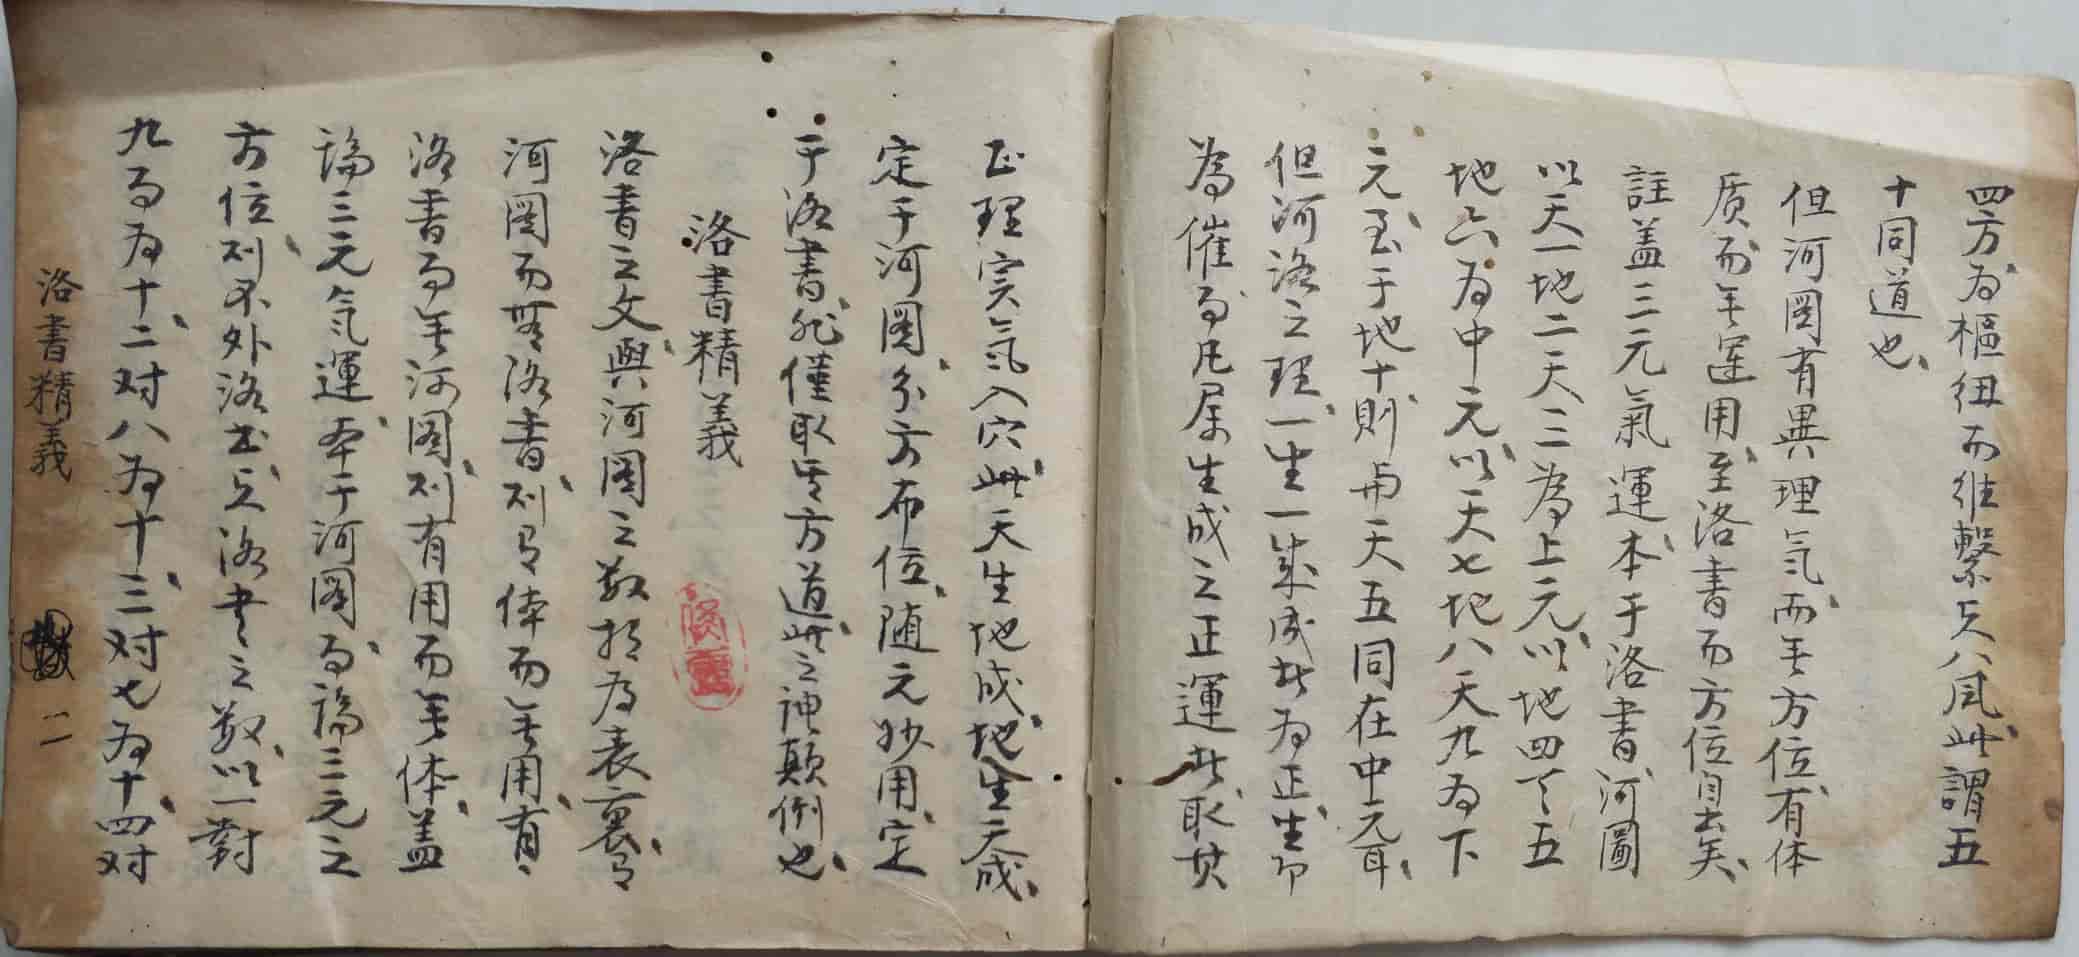 四方、為樞纽而維繫之八風、此謂五
十同道也、
但河圖有異理氣、而無方位、有体
质而無運用、至洛書而方位自出矣、
註蓋三元氣運、本于洛書、河圖
以天一地二天三為上元、以地四天五
地六為中元、以天七地八天九為下
元、至于地十則與天五同在中元耳、
但河洛之理、一生一成、成者為正、生即
為催、而凡屬生成之正運者、取其
正理实氣入穴、此天生地成、地生天成、
定于河圖、分方布位、随元妙用、定
于洛書、非僅取其方道、此之神顛倒也、
洛書精義
洛書之文、與河圖之数相為表裏、有
河圖而無洛書、則有体而無用、有
洛書而無河图、則有用而無体、蓋
論三元氣運、本于河圖、而論三元之
方位、則不外洛书、之洛書之数、以一對
九而為十、二对八為十、三对七為十、四对
洛書精義
二